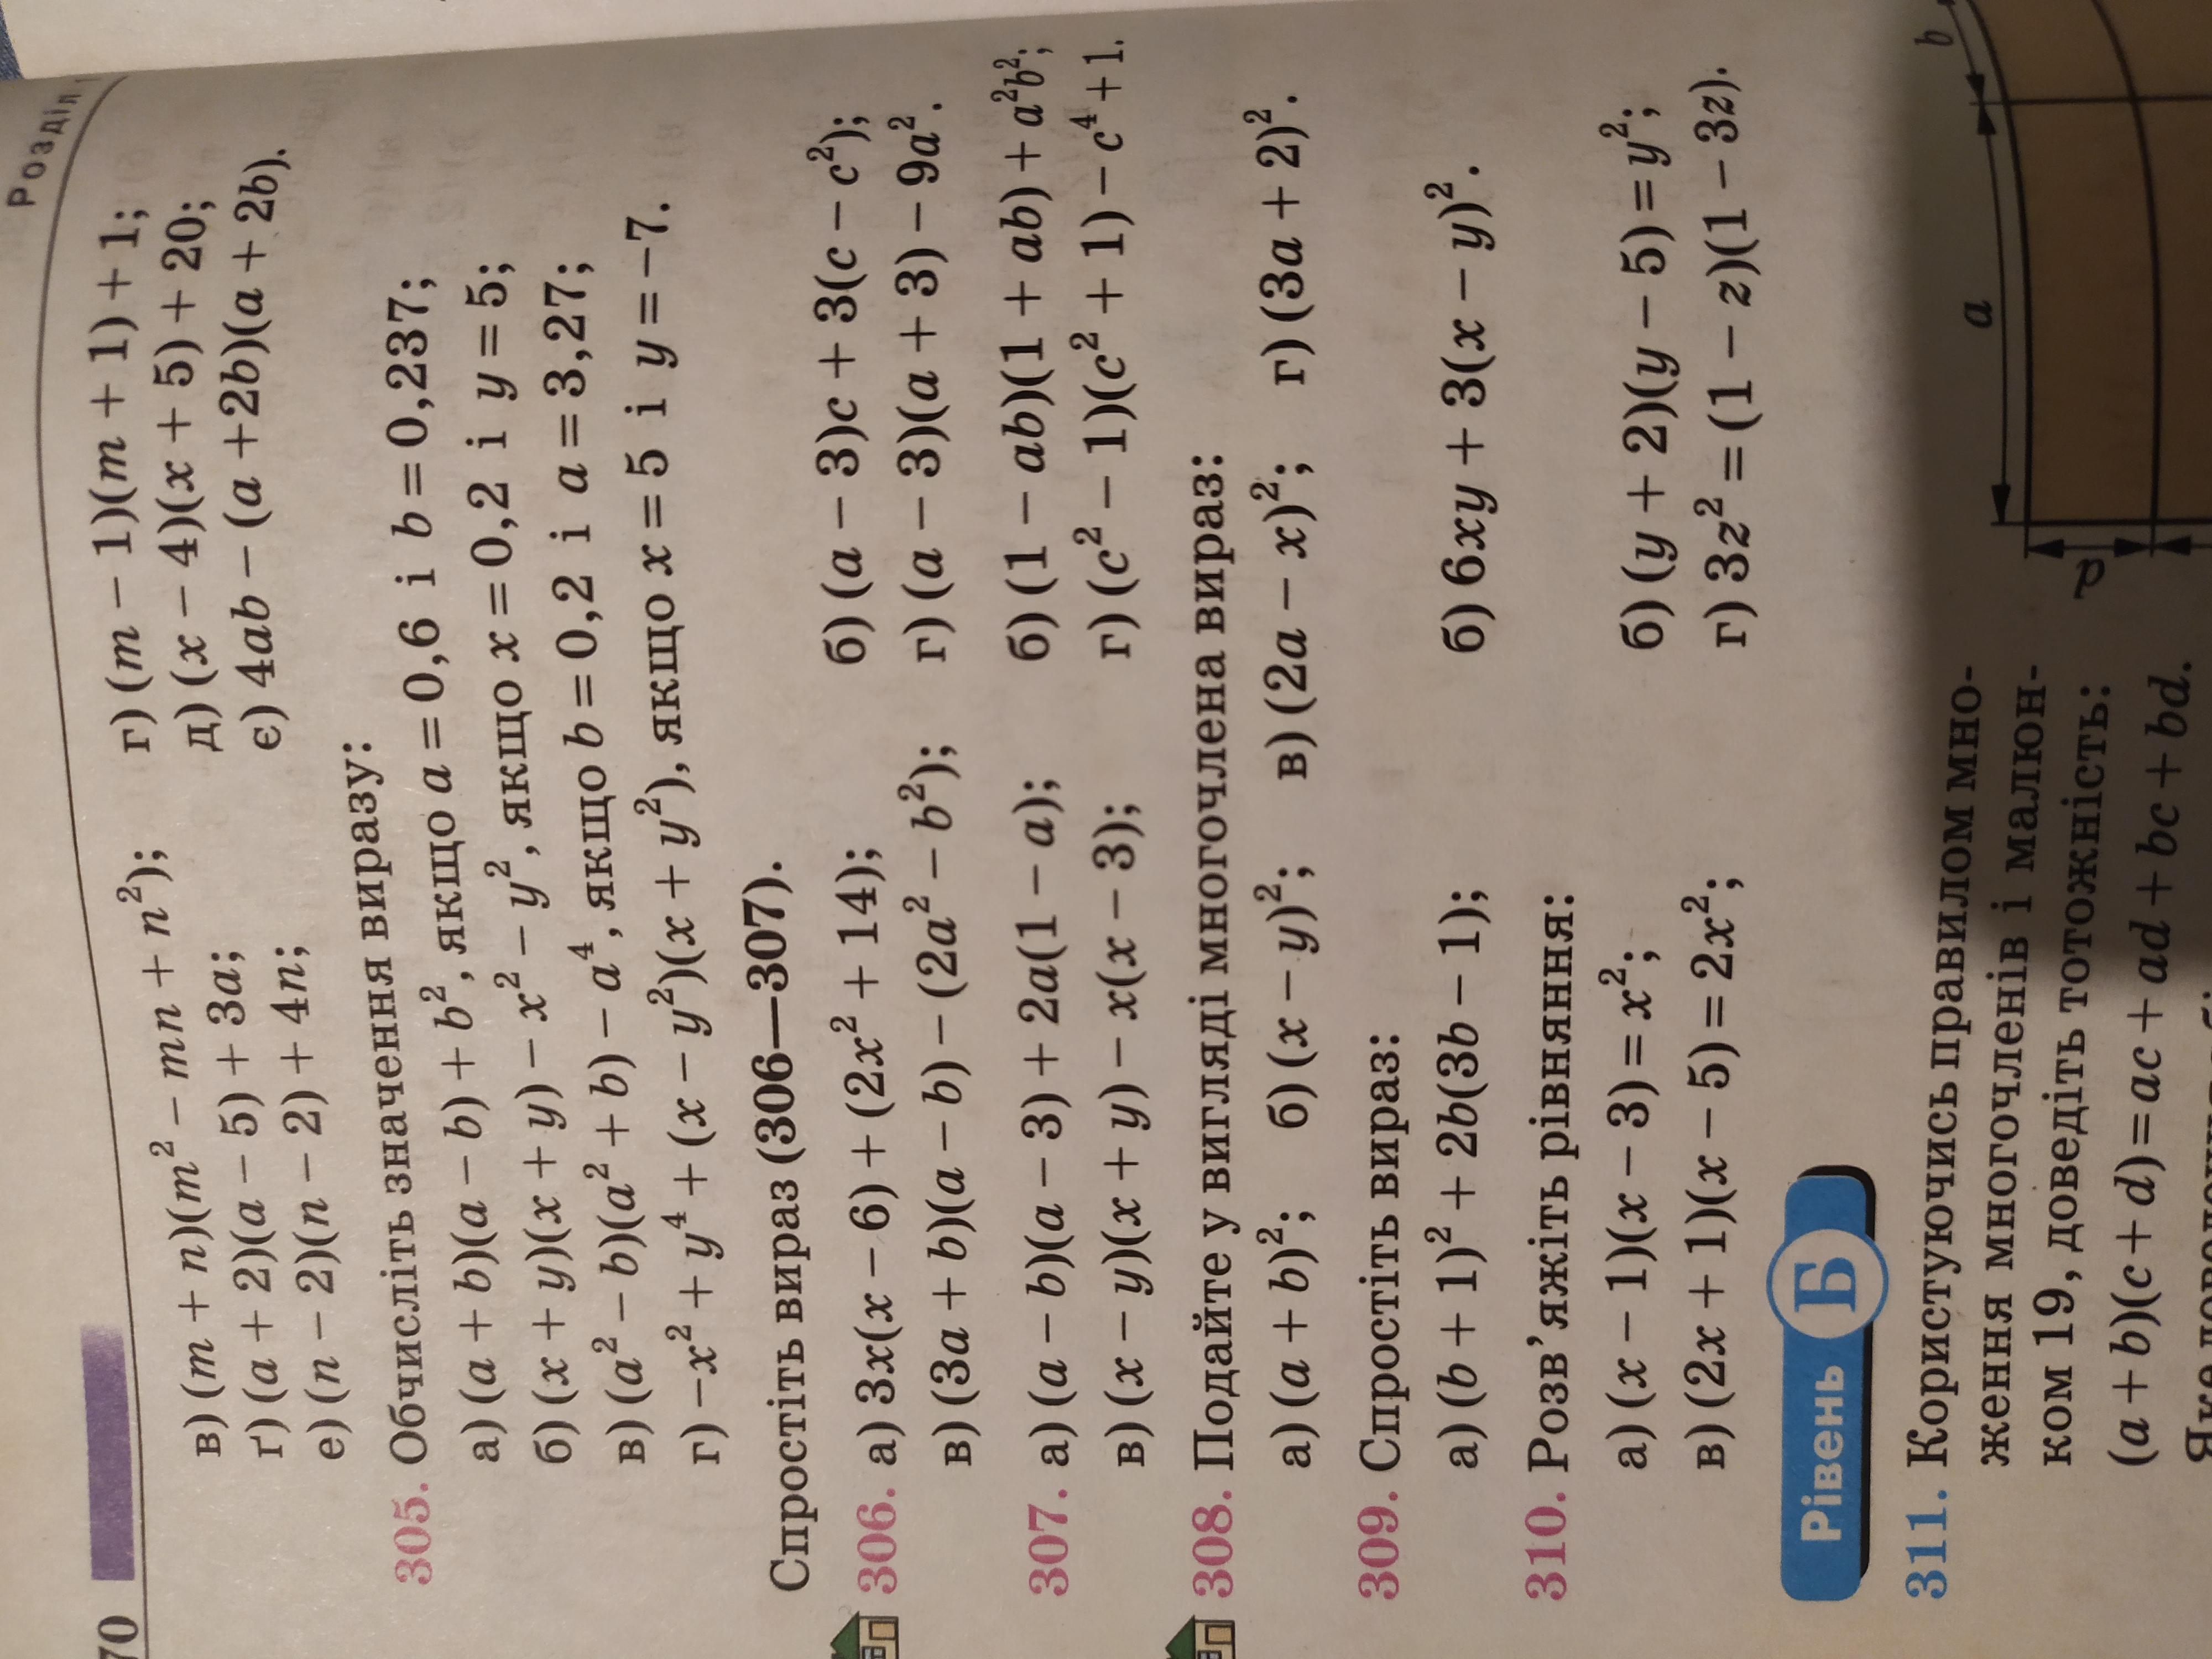 70
Розділ
в) (m + n)(m² − mn + n²); г) (m − 1)(m + 1) + 1;
ґ) (a + 2)(a − 5) + 3a; д) (x − 4)(x + 5) + 20;
е) (n − 2)(n − 2) + 4n; є) 4ab − (a + 2b)(a + 2b).
305. Обчисліть значення виразу:
а) (a + b)(a − b) + b², якщо a = 0,6 і b = 0,237;
б) (x + y)(x + y) − x² − y², якщо x = 0,2 і y = 5;
в) (a² − b)(a² + b) − a⁴, якщо b = 0,2 і a = 3,27;
г) −x² + y⁴ + (x − y²)(x + y²), якщо x = 5 і y = −7.
Спростіть вираз (306—307).
306. а) 3x(x − 6) + (2x² + 14); б) (a − 3)c + 3(c − c²);
в) (3a + b)(a − b) − (2a² − b²); г) (a − 3)(a + 3) − 9a².
307. а) (a − b)(a − 3) + 2a(1 − a); б) (1 − ab)(1 + ab) + a²b²;
в) (x − y)(x + y) − x(x − 3); г) (c² − 1)(c² + 1) − c⁴ + 1.
308. Подайте у вигляді многочлена вираз:
а) (a + b)²; б) (x − y)²; в) (2a − x)²; г) (3a + 2)².
309. Спростіть вираз:
а) (b + 1)² + 2b(3b − 1); б) 6xy + 3(x − y)².
310. Розв’яжіть рівняння:
а) (x − 1)(x − 3) = x²; б) (y + 2)(y − 5) = y²;
в) (2x + 1)(x − 5) = 2x²; г) 3z² = (1 − z)(1 − 3z).
Рівень Б
311. Користуючись правилом мно-
ження многочленів і малюн-
ком 19, доведіть тотожність:
(a + b)(c + d) = ac + ad + bc + bd.
a
b
d